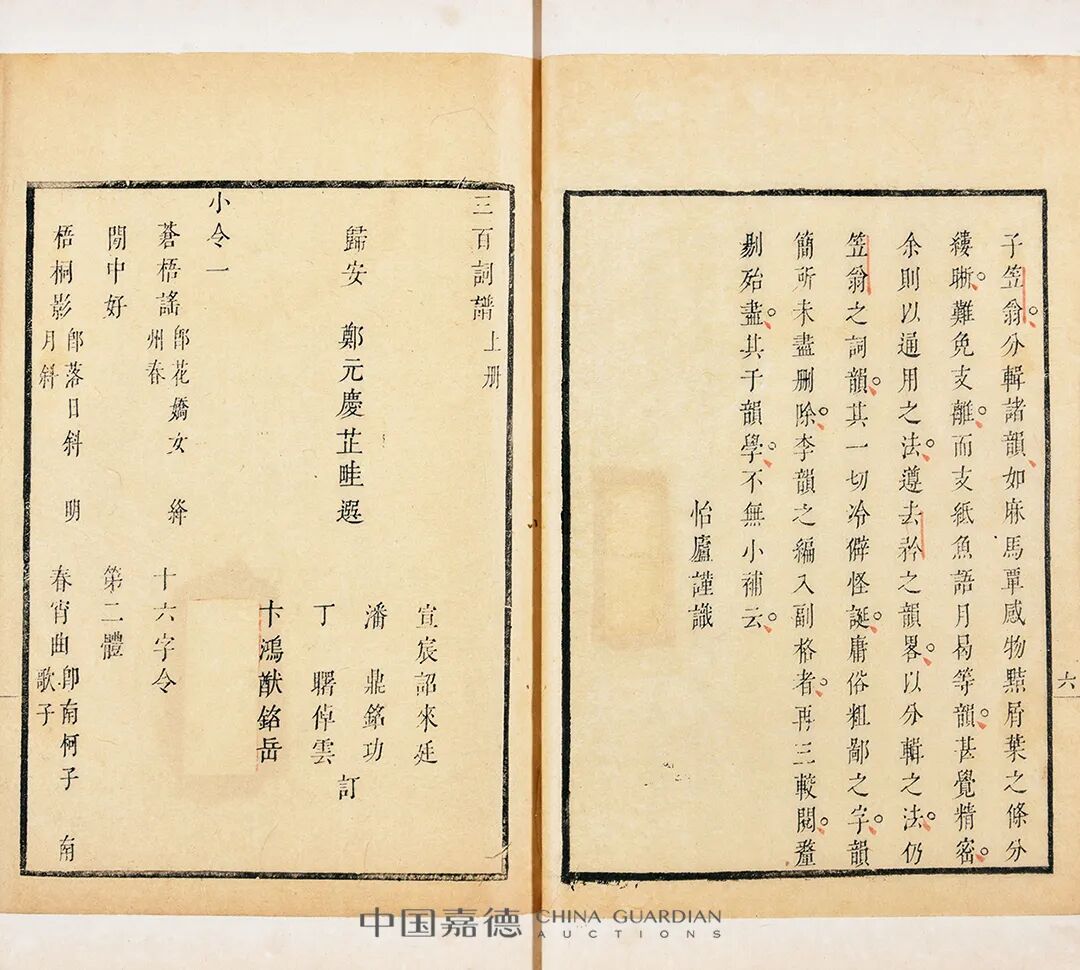 子笠翁分輯諸韻如麻馬覃感物點屑葉之條分
縷晣難免支離而支紙魚語月曷等韻甚覺精密
余則以通用之法遵去矜之韻畧以分輯之法仍
笠翁之詞韻其一切冷僻怪誕庸俗粗鄙之字韻
簡所未盡删除李韻之編入副格者再三較閱釐
剔殆盡其于韻學不無小補云
怡廬謹識
六
三百詞譜 上册
宣宸詔來廷
歸安 鄭元慶芷畦選 潘鼎銘功
丁曙倬雲 訂
卞鴻猷銘岳
小令一
蒼梧謠 卽花嬌女 絳州春 十六字令
閒中好 第二體
梧桐影 卽落日斜 明月斜 春宵曲 卽南柯子 南歌子
中国嘉德 CHINA GUARDIAN AUCTIONS